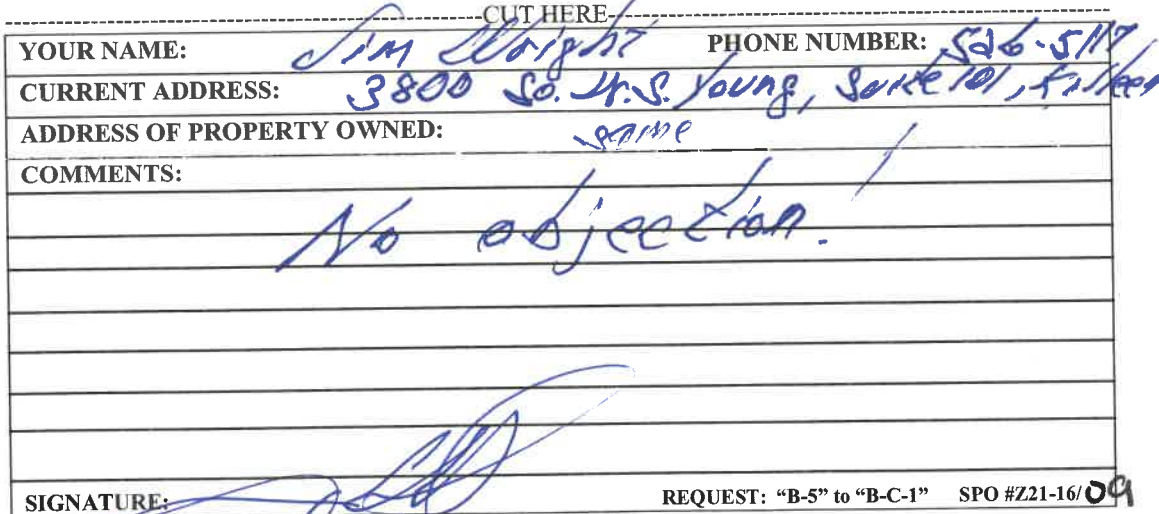 CUT HERE
YOUR NAME: Jim Wright PHONE NUMBER: 526-5117
CURRENT ADDRESS: 3800 So. W.S. Young, Suite 101, Killeen
ADDRESS OF PROPERTY OWNED: same
COMMENTS:
No objection!
SIGNATURE:
REQUEST: “B-5” to “B-C-1” SPO #Z21-16/09